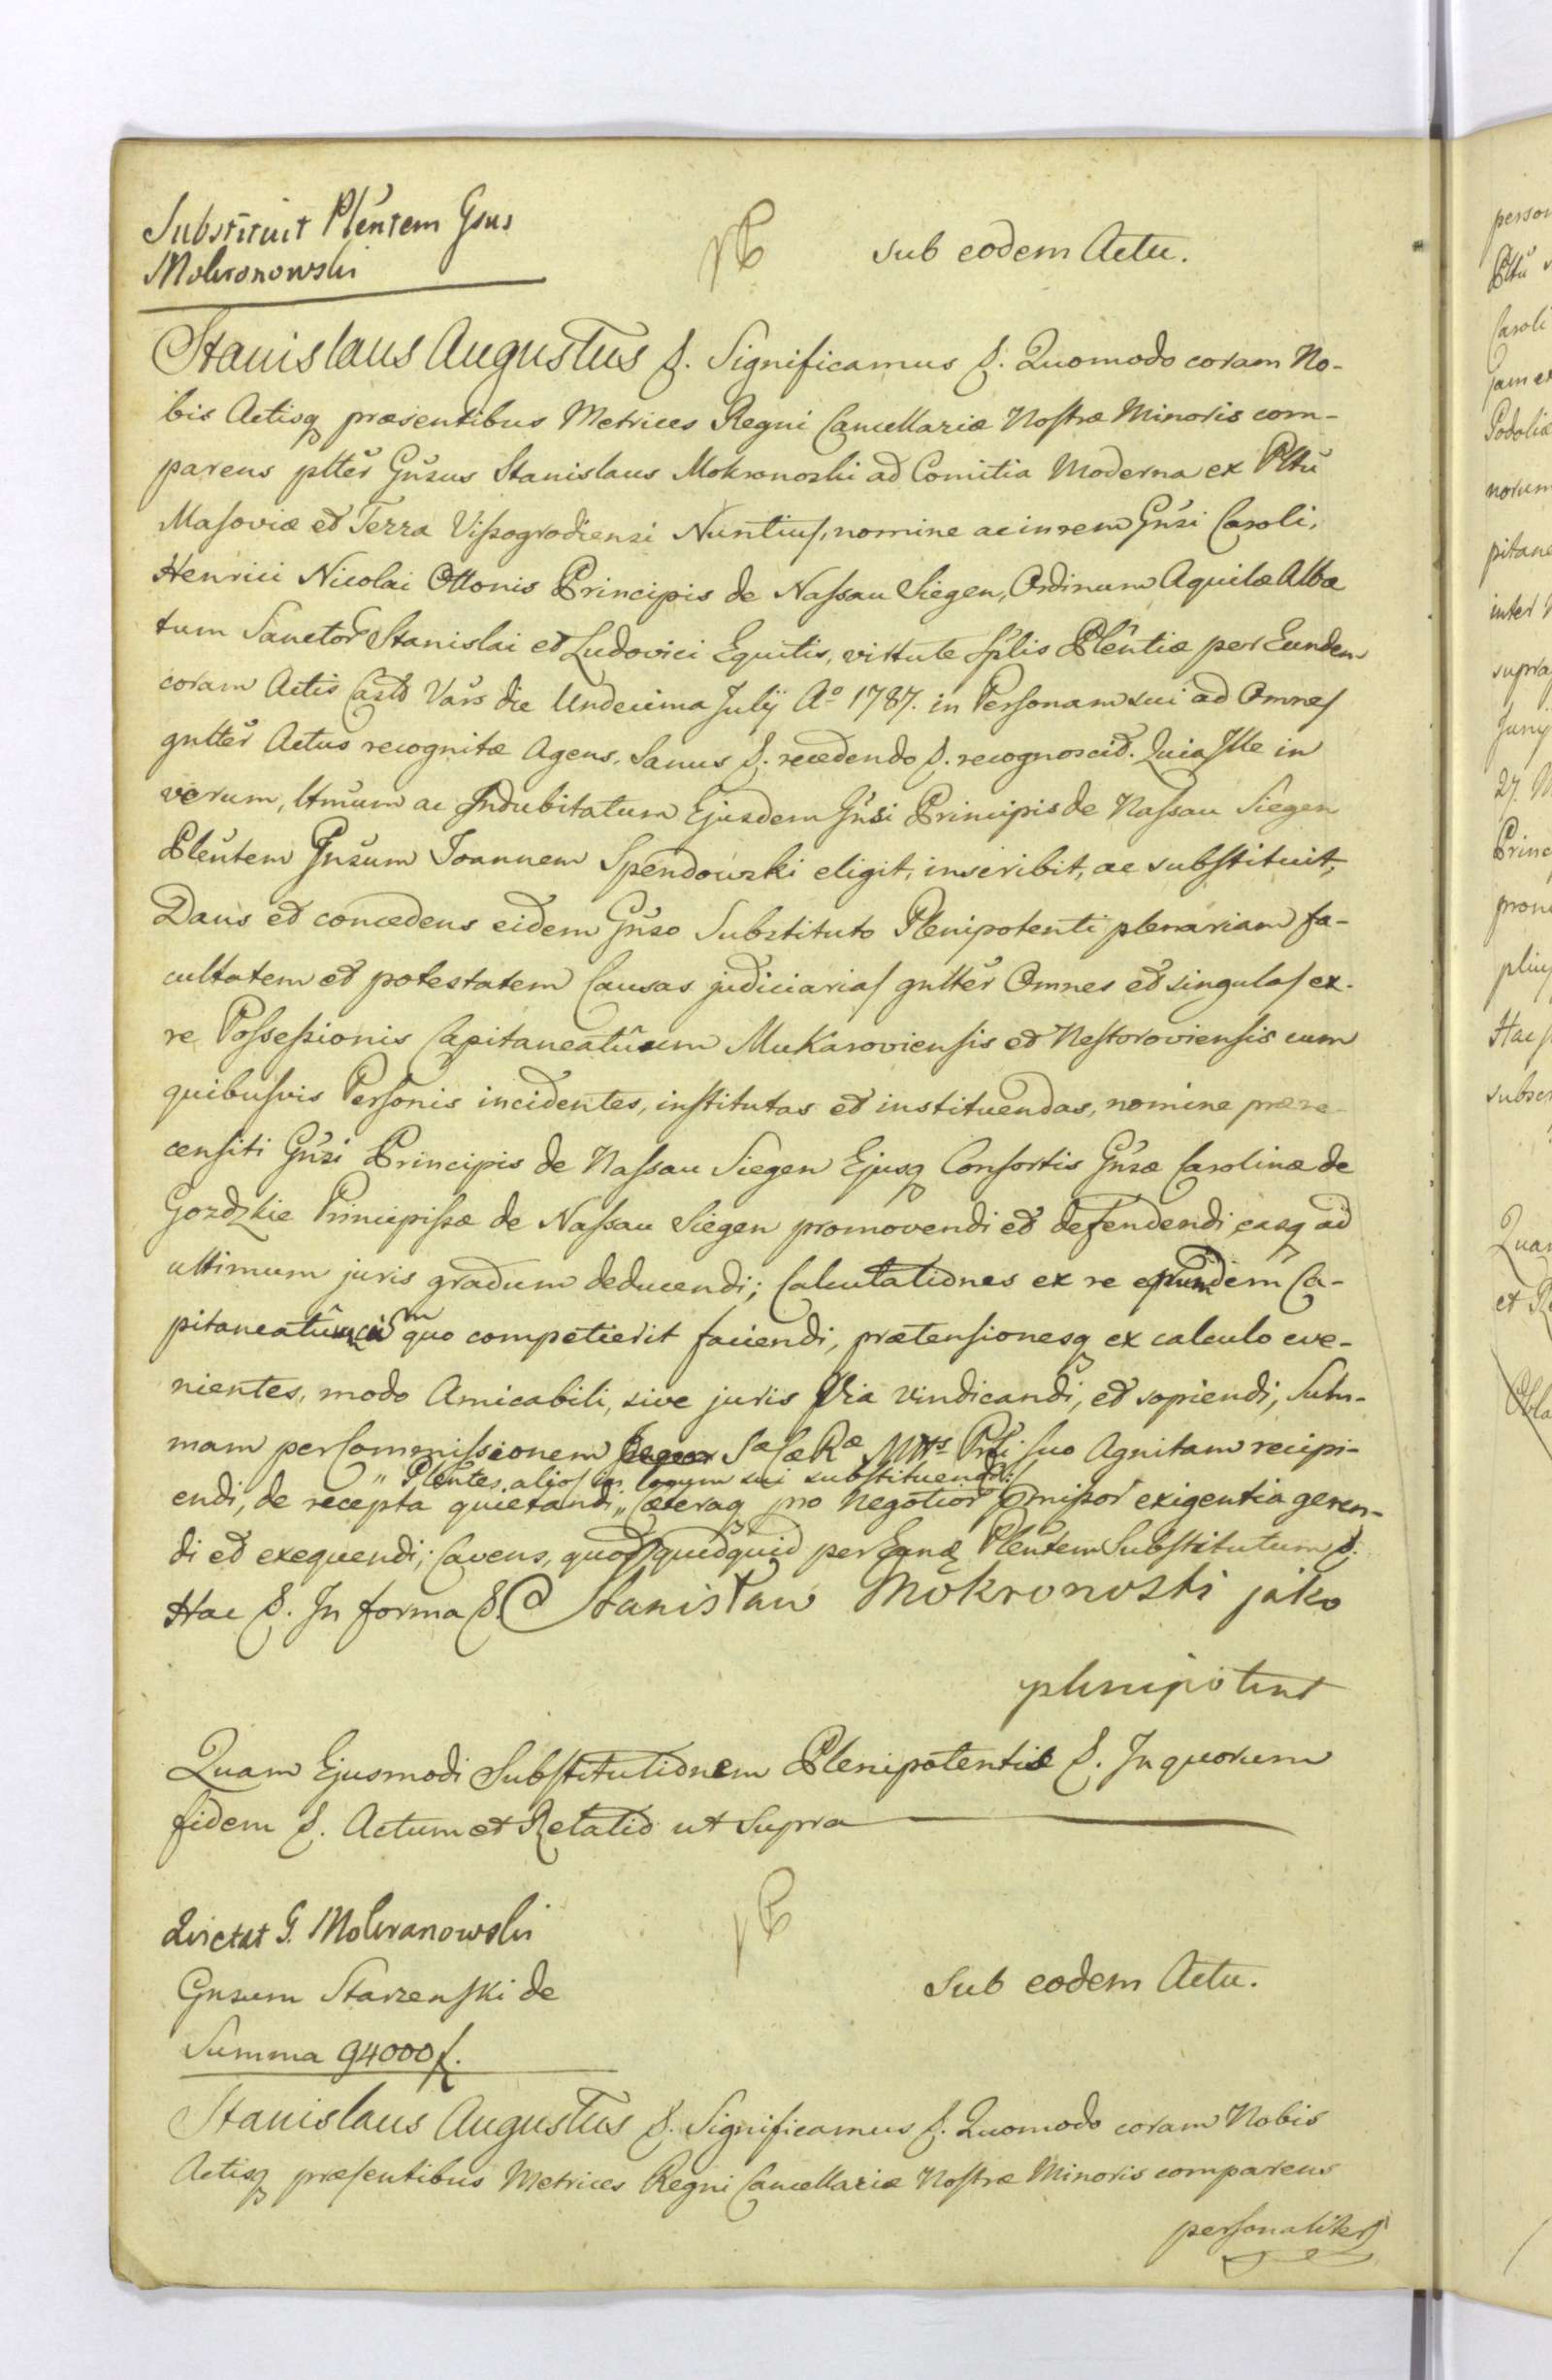 Substituit Plentem Gsus
Mokronowski
sub eodem Actu.
Stanislaus Augustus &. Significamus &. Quomodo coram No-
bis Actisq præsentibus Metrices Regni Cancellariæ Nostræ Minoris com-
parens plter Gnsus Stanislaus Mokronoski ad Comitia Moderna ex Pltu
Masoviæ et Terra Vissogrodiensi Nuntius, nomine ac in rem Gnsi Caroli,
Henrici Nicolai Ottonis Principis de Nassau Siegen, Ordinum Aquilæ Albæ
tum Sanctor Stanislai et Ludovici Equitis, virtute Splis Plentiæ per Eundem
coram Actis Castr Vars die Undecima Julÿ Aº 1787. in Personam sui ad Omnes
gntter Actus recognitæ Agens. Sanus &. recedendo &. recognoscit. Quia Ille in
verum, ltmum ac Indubitatum Ejusdem Gnsi Principis de Nassau Siegen
Plentem Gnsum Joannem Spendowski eligit, inscribit, ac substituit,
Dans et concedens eidem Gnso Substituto Plenipotenti plenariam fa-
cultatem et potestatem Causas judiciarias gntter Omnes et singulas ex-
re Possessionis Capitaneatûum Mukaroviensis et Nestoroviensis cum
quibusvis Personis incidentes, institutas et instituendas, nomine prære-
censiti Gnsi Principis de Nassau Siegen Ejusq Consortis Gnsæ Carolinæ de
Gozdzkie Principissæ de Nassau Siegen promovendi et defendendi, easq ad
ultimum juris gradum deducendi; Calculationes ex re eorundem Ca-
pitaneatûum cum quo competierit faciendi, prætensionesq ex calculo eve-
nientes, modo Amicabili, sive juris Via vindicandi, et sopiendi, Sum-
mam per Commissionem Sæ Cæ Ræ Mttis Prli suo Agnitam recipi-
„ Plentes alios in locum sui substituendi:/
endi, de recepta quietandi, „ Cæteraq pro Negotior præmissor exigentia geren-
di et exequendi; Cavens, quod quidquid per Eundem Plentem Substitutum &.
Hac &. In forma &. Stanisław Mokronoski jako
plenipotent
Quam Ejusmodi Substitutionem Plenipotentiæ &. In quorum
fidem &. Actum et Relatio ut Supra
Quietat G. Mokranowski
Gnsum Starzenski de
Summa 94000 f.
Sub eodem Actu.
Stanislaus Augustus &. Significamus &. Quomodo coram Nobis
Actisq præsentibus Metrices Regni Cancellariæ Nostræ Minoris comparens
personaliter